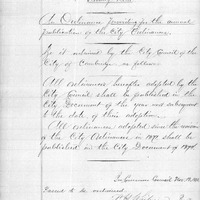 An Ordinance Providing for the annual
publication of the City Ordinances.
Be it ordained by the City Council of the
City of Cambridge as follows:
All ordinances hereafter adopted by the
City Council shall be published in the
City Document of the year next subsequent
to the date of their adoption.
All ordinances adopted since the revision
of the City Ordinances in 1892 shall be
published in the City Document of
In Common Council, Nov.
Passed to be ordained.